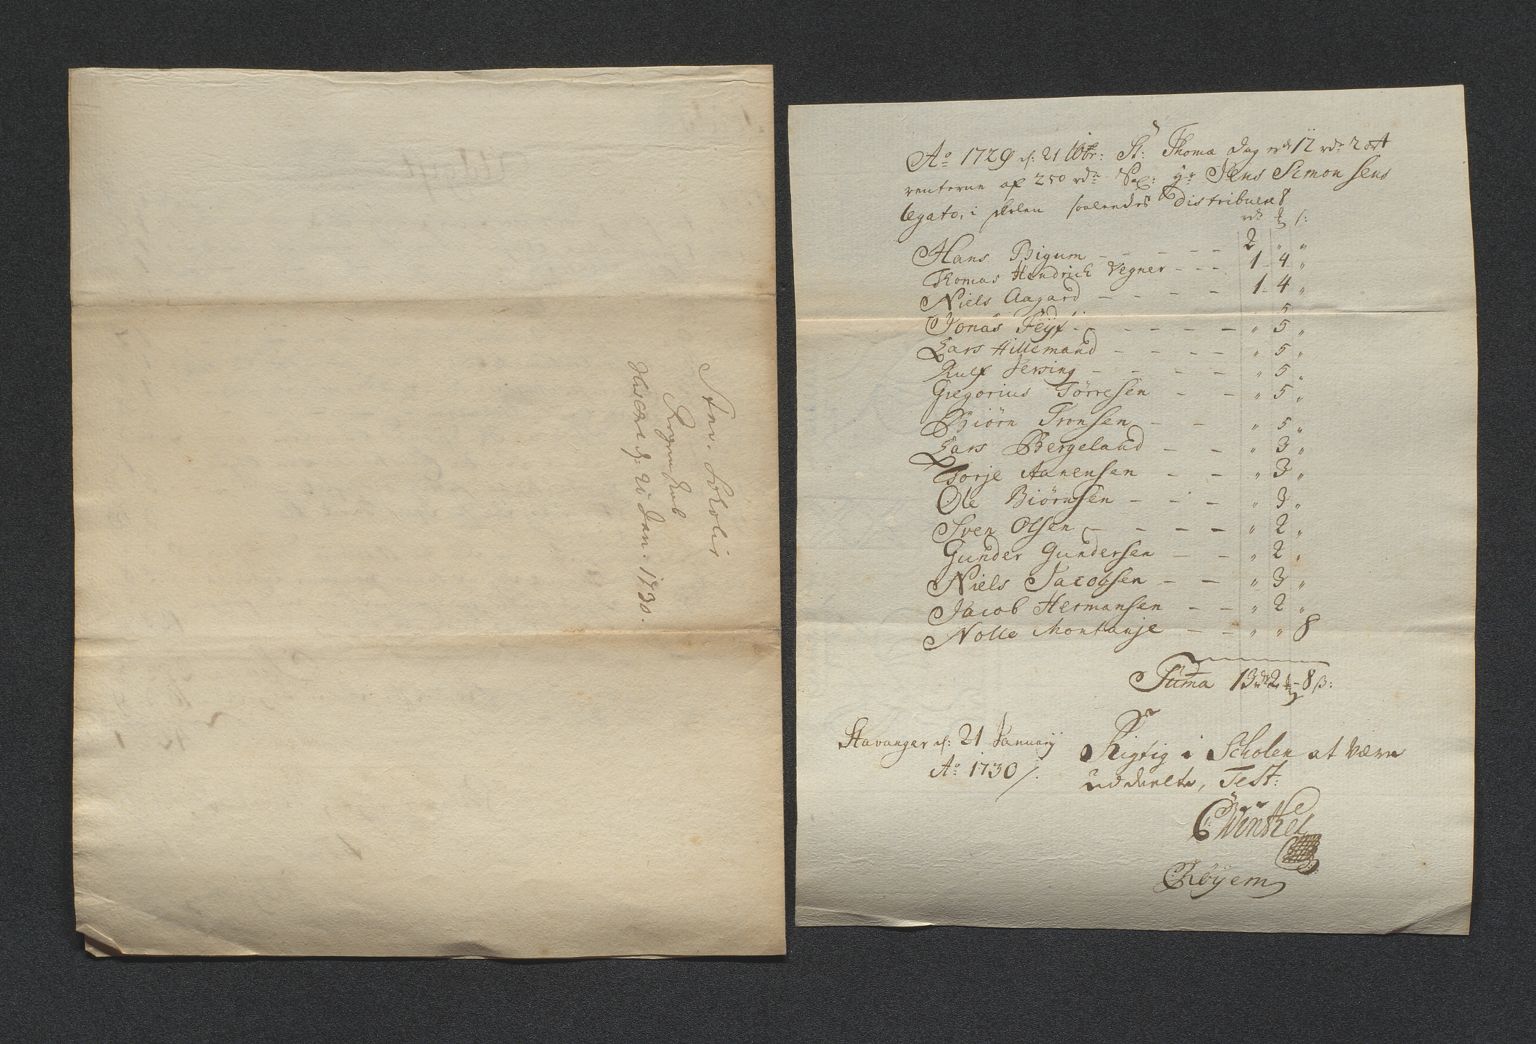 Stav. Scholis
Regenskab
Udsted d: 21 Jan: 1730.
Ao 1729 d: 21 Xbr: St: Thomæ dag er 12 rdr 2 ort
renterne af 250 rdr Sal: Hr Jens Simonsens
legato, i skolen saaledes distribueret
rdr ort s:
Hans Bigum - - - - - 2 " "
Thomas Hendrich Vegner - - - 1 - 4 "
Niels Aagard - - - - - 1 - 4 "
Jonas Feyf - - - - - " 5 "
Lars Hillemand - - - - - " 5 "
Rulf Jersing - - - - - " 5 "
Gregorius Tørresen - - " 5 "
Biörn Tronsen - - " 5 "
Lars Bergeland - - " 3 "
Torje Aanensen - - " 3 "
Ole Biørnsen - - - " 3 "
Sven Olsen - - - - " 2 "
Gunder Gundersen - - " 2 "
Niels Jacobsen - - " 3 "
Jacob Hermansen - - " 2 "
Nolle Montanje - - " " 8
Suma 13 rdr 2 ort - 8 s:
Stavanger d: 21 January
Ao 1730
Rigtig i Scholen at være
uddeelte, Test:
C Winkel
Røyem